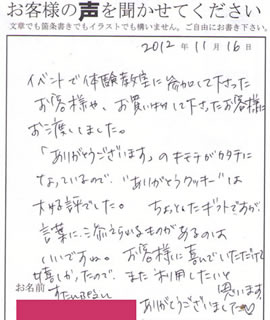 お客様の声を聞かせてください
文章でも箇条書きでもイラストでも構いません。ご自由にお書き下さい。
2012年11月16日
イベントで体験教室に参加して下さった
お客様や、お買い物して下さったお客様に
お渡ししました。
「ありがとうございます」のキモチがカタチに
なっているので、"ありがとうクッキー"は
大好評でした。ちょっとしたギフトですが、
言葉に添えられるものがあるのは
いいですね。お客様に喜んでいただけて
嬉しかったので、また利用したいと
思います。
お名前
ありがとうございました♡